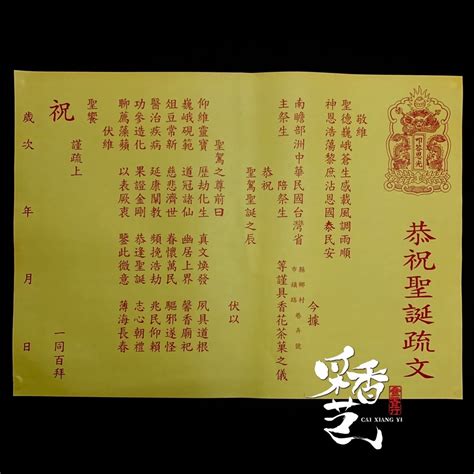 恭祝聖誕疏文
叩答恩光
敬維
聖德巍峨蒼生感載風調雨順
神恩浩蕩黎庶沾恩國泰民安
今據
南瞻部洲中華民國台灣省
縣鄉村巷弄號
市鎮路
主祭生
陪祭生
等謹具香花茶菓之儀
恭祝
聖駕聖誕之辰
伏以
聖駕之尊前曰
仰維靈寶 歷劫化生 真文煥發 夙具道根
巍峨硯範 道冠諸仙 幽居上界 馨香廟祀
俎豆常新 慈悲濟世 眷懷萬民 驅邪遂怪
醫治疾病 延康闡教 頻挽浩劫 兆民仰賴
功參造化 果證金剛 恭逢聖誕 志心朝禮
聊薦藻蘋 以表厥衷 鑒此微意 薄海長春
伏維
聖饗
謹疏上
祝
歲次 年 月 日
一同百拜
采香艺
CAI XIANG YI